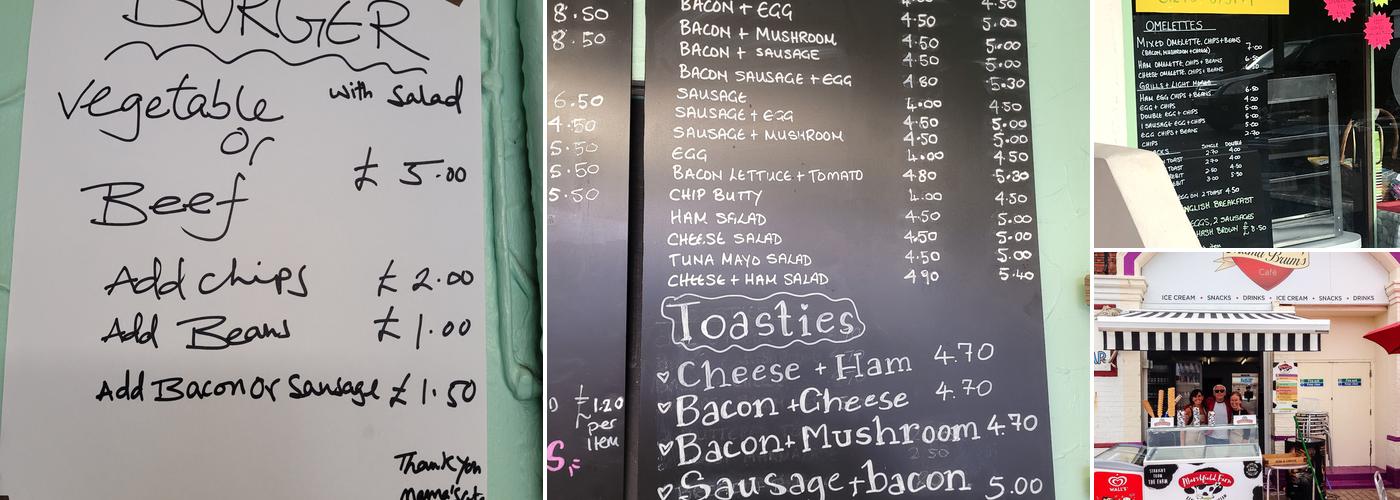 BURGER
Vegetable with Salad
Or
£ 5.00
Beef
Add Chips £ 2.00
Add Beans £ 1.00
Add Bacon Or Sausage £ 1.50
Thank you
8.50
8.50
6.50
4.50
5.50
5.50
5.50
£1.20
per
item
BACON + EGG 4.50 5.00
BACON + MUSHROOM 4.50 5.00
BACON + SAUSAGE 4.50 5.00
BACON SAUSAGE + EGG 4.80 5.30
SAUSAGE 4.00 4.50
SAUSAGE + EGG 4.50 5.00
SAUSAGE + MUSHROOM 4.50 5.00
EGG 4.00 4.50
BACON LETTUCE + TOMATO 4.80 5.30
CHIP BUTTY 4.00 4.50
HAM SALAD 4.50 5.00
CHEESE SALAD 4.50 5.00
TUNA MAYO SALAD 4.50 5.00
CHEESE + HAM SALAD 4.90 5.40
Toasties
Cheese + Ham 4.70
Bacon + Cheese 4.70
Bacon + Mushroom 4.70
Sausage + bacon 5.00
OMELETTES
MIXED OMELETTE, CHIPS + BEANS 7.00
(BACON, MUSHROOM + CHEESE)
HAM OMELETTE, CHIPS + BEANS
CHEESE OMELETTE, CHIPS + BEANS
GRILLS + LIGHT MEALS
HAM EGG CHIPS + BEANS 6.50
EGG + CHIPS
DOUBLE EGG + CHIPS
1 SAUSAGE EGG + CHIPS
EGG CHIPS + BEANS
CHIPS 2.70
SINGLE DOUBLE
TOAST
EGG ON 2 TOAST 4.50
ENGLISH BREAKFAST
EGGS, 2 SAUSAGES
HASH BROWN £ 8.50
Brum's
Café
ICE CREAM • SNACKS • DRINKS • ICE CREAM • SNACKS • DRINKS
WALL'S
STRAIGHT FROM THE FARM
Marshfield Farm